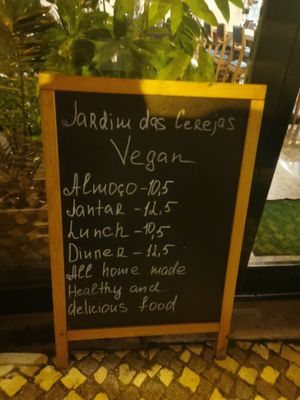 Jardim das Cerejas
Vegan
Almoço - 10,5
Jantar - 12,5
Lunch - 10,5
Dinner - 12,5
All home made
Healthy and
delicious food